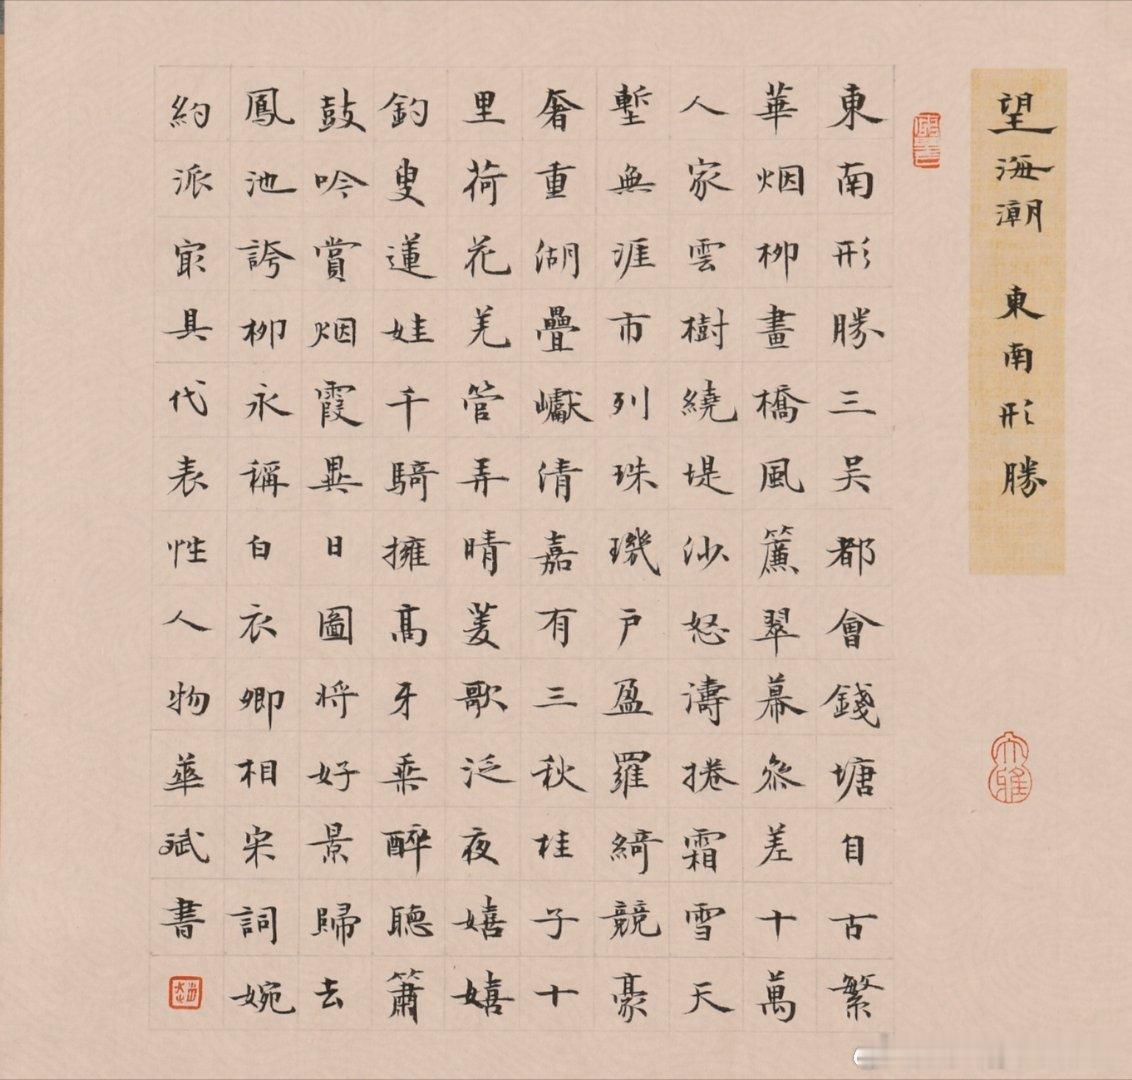 望海潮 東南形勝
東南形勝三吴都會錢塘自古繁
華烟柳畫橋風簾翠幕叅差十萬
人家雲樹繞堤沙怒濤捲霜雪天
塹無涯市列珠璣户盈羅綺競豪
奢重湖疊巘清嘉有三秋桂子十
里荷花羌管弄晴菱歌泛夜嬉嬉
釣叟蓮娃千騎擁高牙乘醉聽簫
鼓吟賞烟霞異日圖将好景歸去
鳳池誇柳永稱白衣卿相宋詞婉
約派冣具代表性人物華斌書
大雅